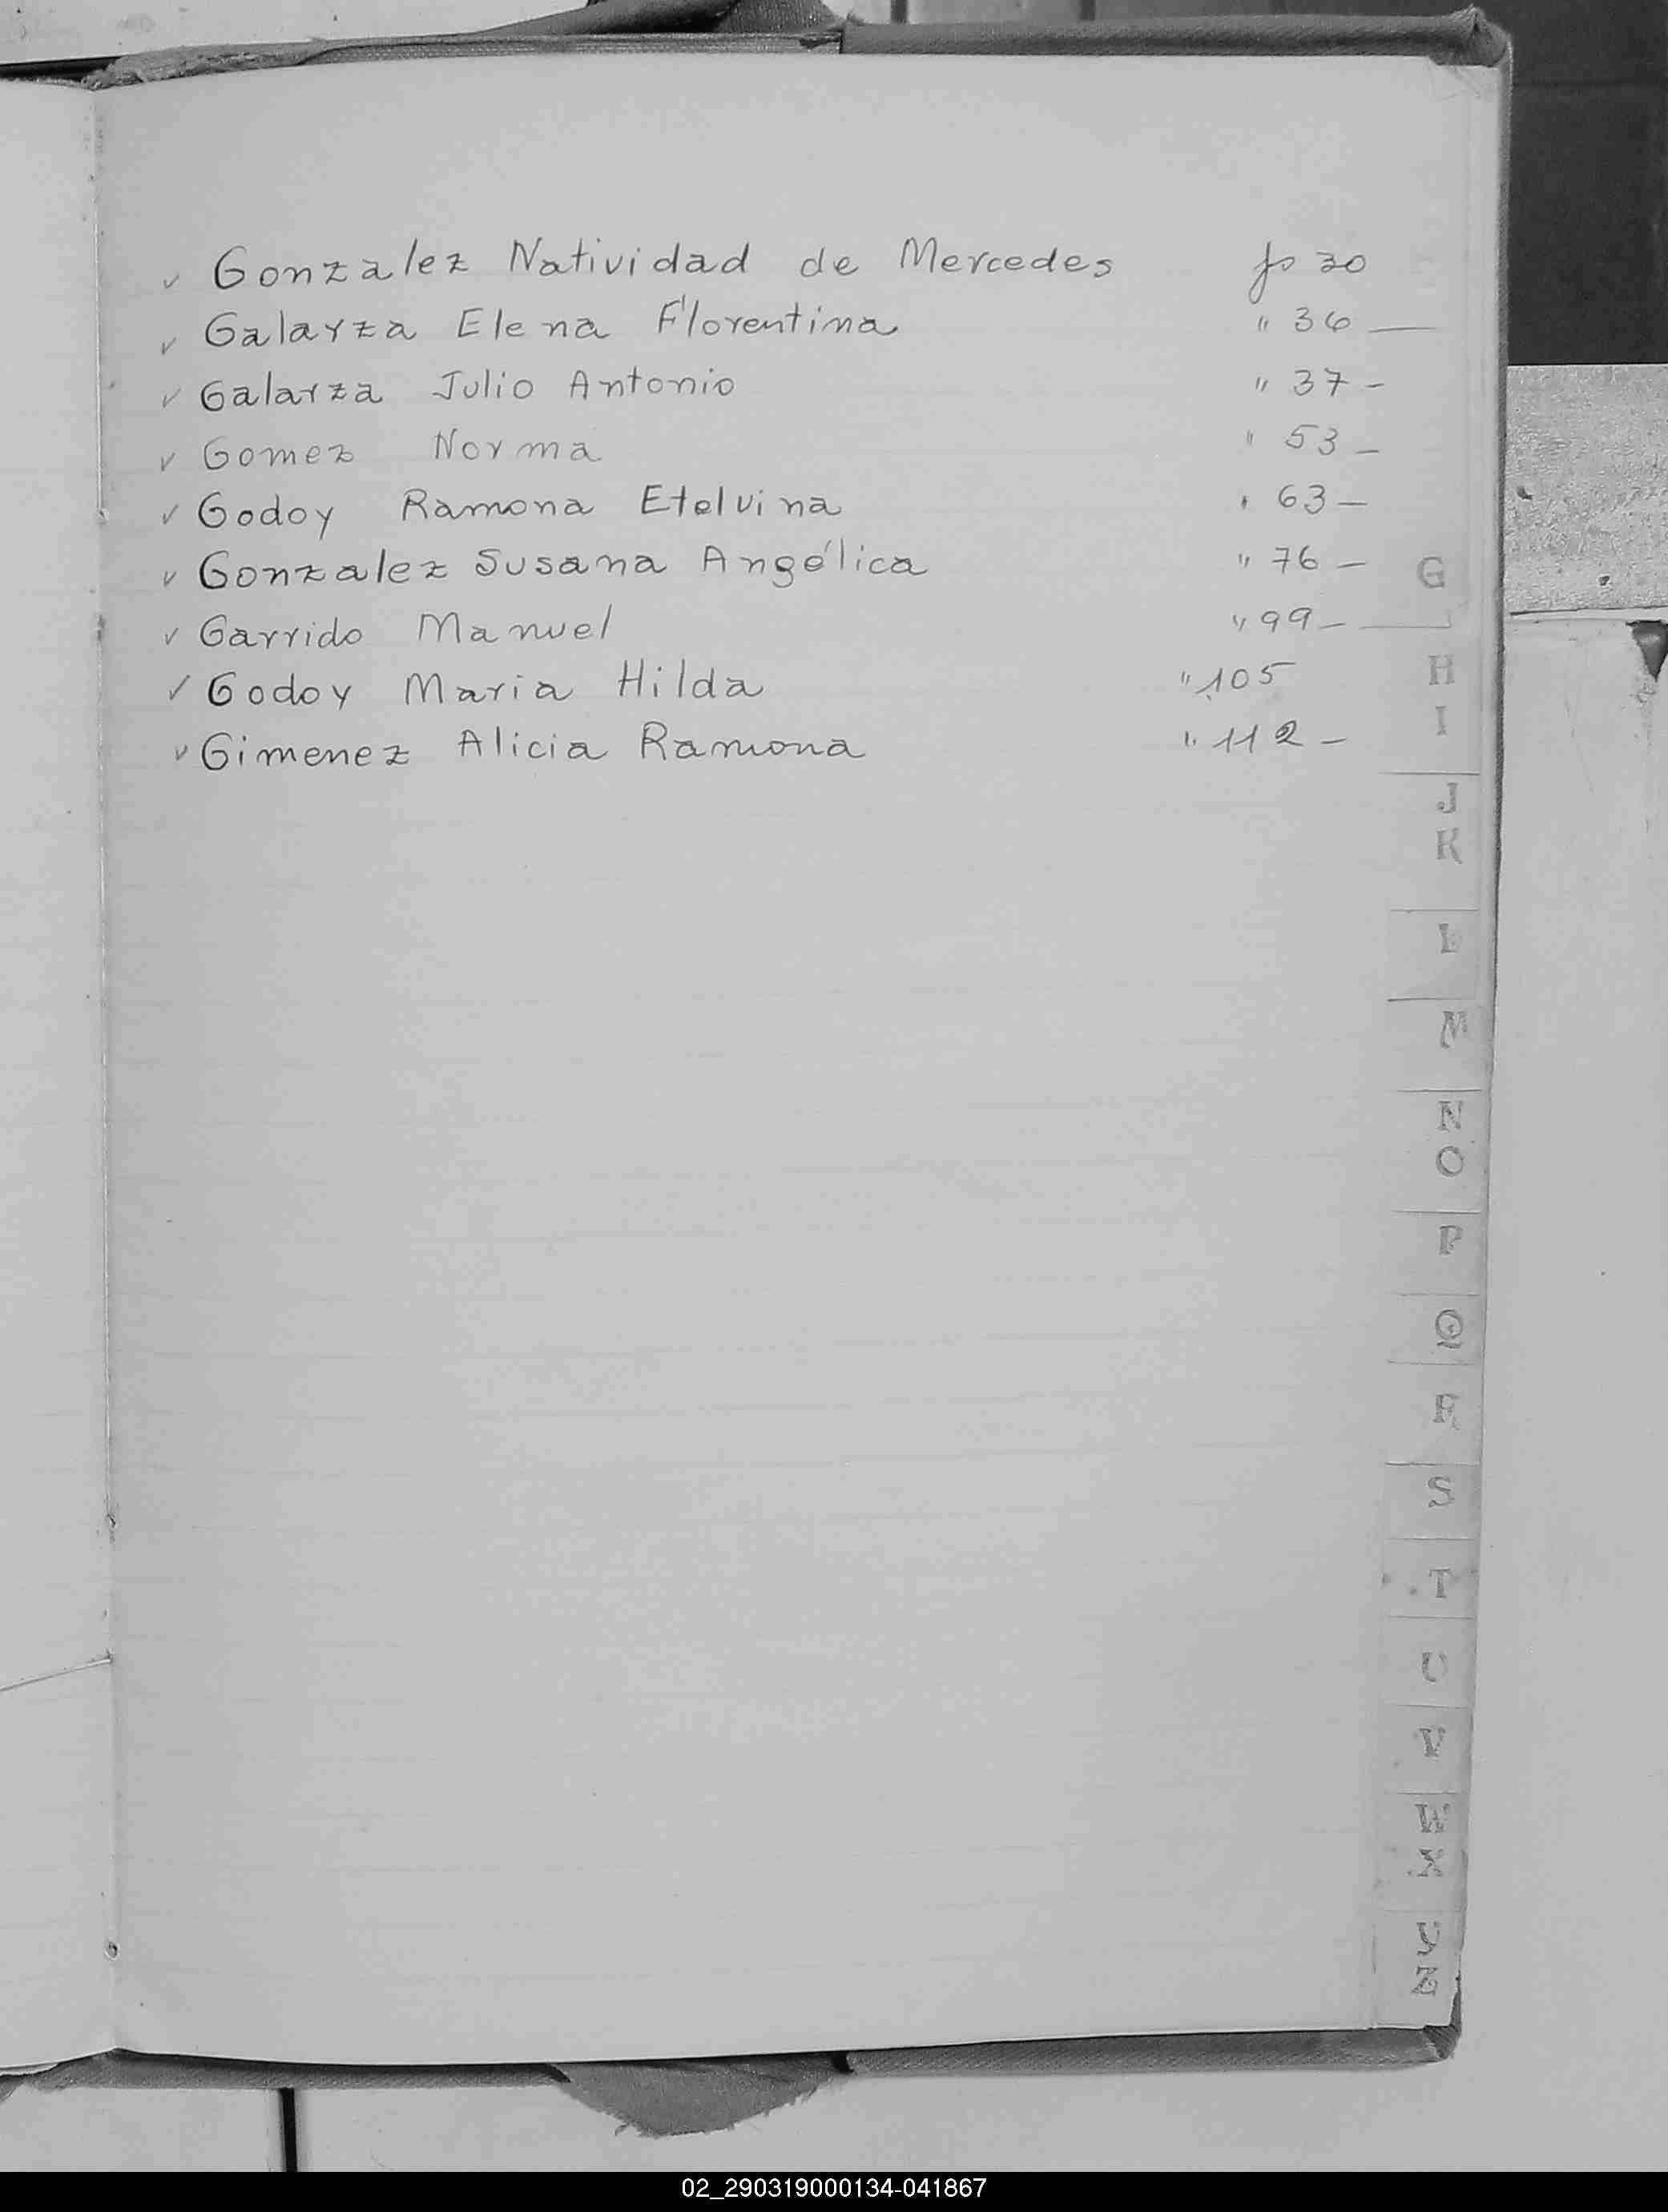 ✓ Gonzalez Natividad de Mercedes fs 30
✓ Galarza Elena Florentina " 36 —
✓ Galarza Julio Antonio " 37 -
✓ Gomez Norma " 53 -
✓ Godoy Ramona Etelvina " 63 -
✓ Gonzalez Susana Angélica " 76 -
✓ Garrido Manuel " 99 -
✓ Godoy Maria Hilda " 105
✓ Gimenez Alicia Ramona " 112 -
G
H
I
J
K
L
M
N
O
P
Q
R
S
T
U
V
W
X
Y
Z
02_290319000134-041867